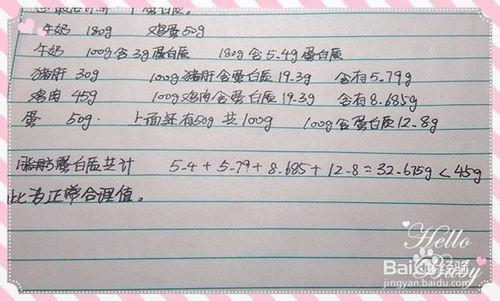 蛋白质。
牛奶 180g 鸡蛋50g
牛奶 100g含3g蛋白质 180g含5.4g蛋白质
猪肝 30g 100g猪肝含蛋白质19.3g 含有5.79g
鸡肉 45g 100g鸡肉含蛋白质19.3g 含有8.685g
蛋 50g. 上面还有50g 共100g 100g含蛋白质12.8g
蛋白质共计 5.4+5.79+8.685+12.8=32.675g<45g
此为正常合理值。
Hello
Baby
Baidu经验
jingyan.baidu.com